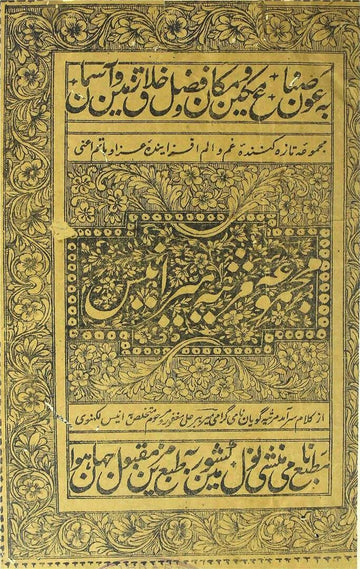 به عون صناع مکین و مکان و فضل خلاق زمین و آسمان
مجموعہ تازہ کنندہ غم و الم افزایندہ عزا و ماتم اعنی
مجموعہ مرثیہ میر انیس
از کلام سرآمد مرثیہ گویان نامی گرامی میر ببر علی مغفور مرحوم متخلص انیس لکھنوی
مطبع نامی منشی نول کشور میں بہ طبع مزین مقبول جہان ہوا